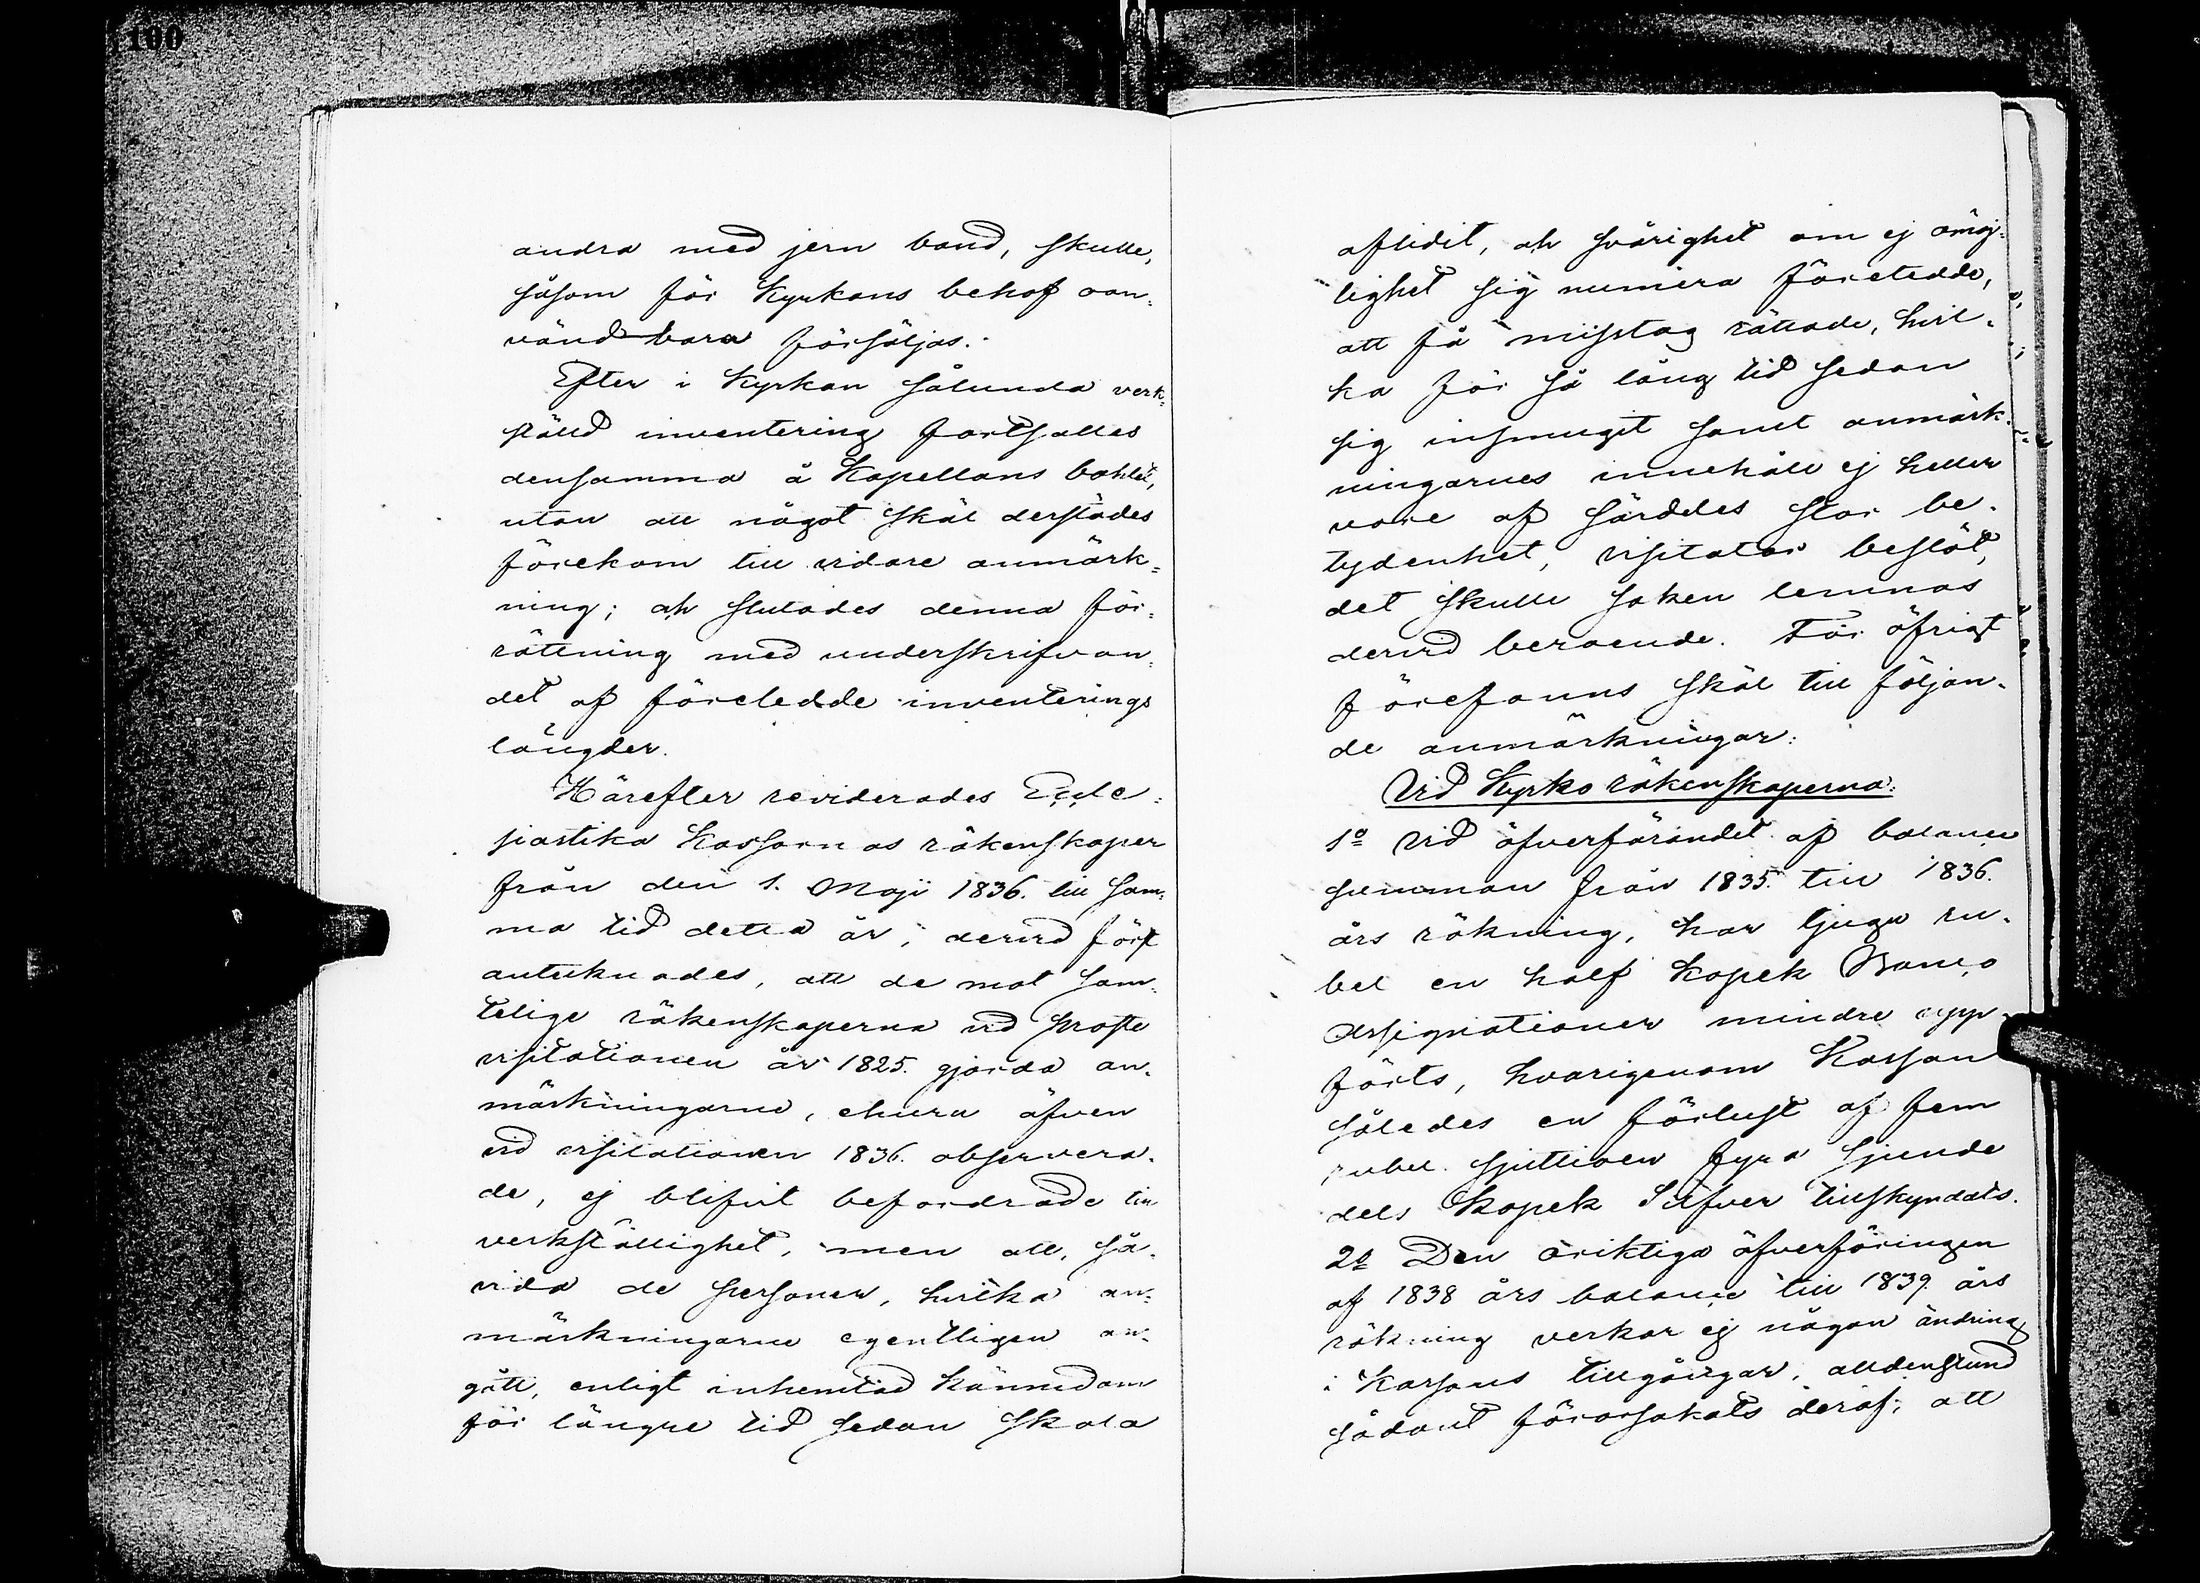 100
andra med jern band, skulle,
såsom för Kyrkans behof oan-
vändbara försäljas.
Efter i Kyrkan sålunda verk-
ställd inventering fortsattes
densamma å Kapellans bohlet,
utan att något skäl derstädes
förekom till vidare anmärk-
ning; och slutades denna för-
rättning med underskrifvan-
det af företedde inventerings
längder.
Härefter reviderades Eccle-
siastika Kassornas räkenskaper
från den 1. Maji 1836. till sam-
ma tid detta år; dervid först
antecknades, att de mot sam-
telige räkenskaperna vid Proste
visitationen år 1825. gjorda an-
märkningarne, ehuru äfven
vid visitationen 1836. observera-
de, ej blifvit befordrade till
verkställighet, men att, så-
vida de personer, hvilka an-
märkningarne egentligen an-
gått, enligt inhemtad kännedom
för längre tid sedan skola
aflidit, och svårighet om ej omöj-
lighet sig numera företedde,
att få misstag rättade, hvil-
ka för så lång tid sedan
sig insmugit samt anmärk-
ningarnes innehåll ej heller
vore af särdeles stor be-
tydenhet, visitator beslöt,
det skulle saken lemnas
dervid beroende. För öfrigt
förefanns skäl till följan-
de anmärkningar:
Vid Kyrko räkenskaperna:
1º Vid öfverförandet af balance
summan från 1835. till 1836.
års räkning, har tjugu ru-
bel en half kopek Banco
Assignationer mindre upp-
förts, hvarigenom Kassan
således en förlust af fem
rubel sjuttioen fyra sjunde
dels Kopek Silfver tillskyndats.
2º Den oriktiga öfverföringen
af 1838 års balance till 1839. års
räkning verkar ej någon ändring
i Kassans tillgångar, alldenstund
sådant förorsakats deraf, att